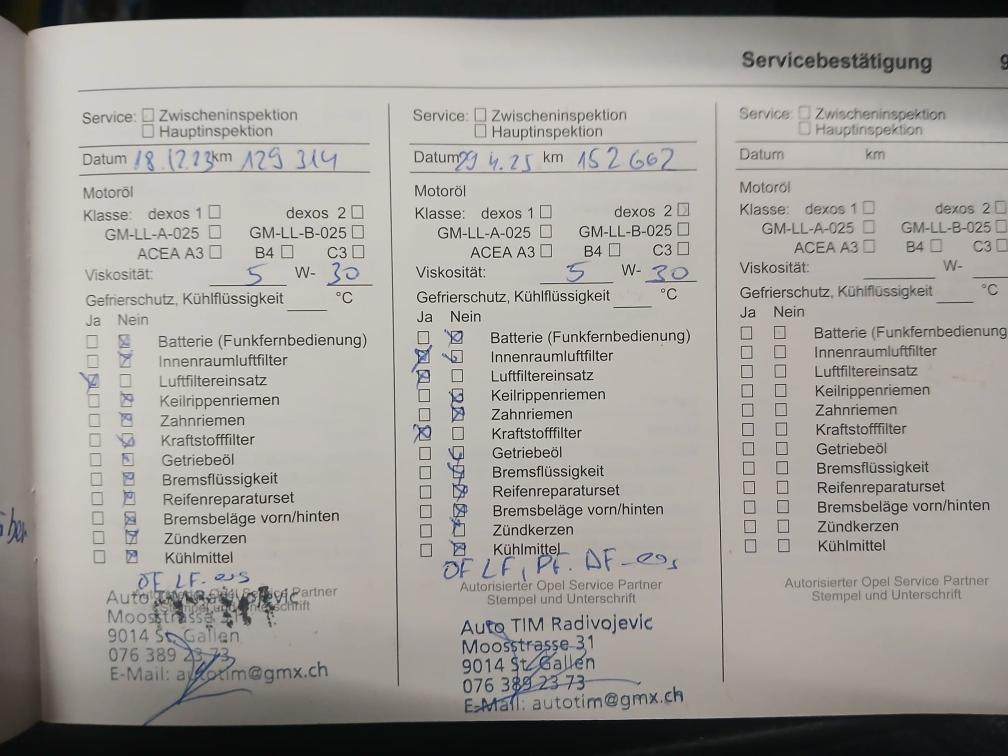 Servicebestätigung 9
Service: Zwischeninspektion
Hauptinspektion
Datum 18.12.23 km 129 314
Motoröl
Klasse: dexos 1 dexos 2
GM-LL-A-025 GM-LL-B-025
ACEA A3 B4 C3
Viskosität: 5 W- 30
Gefrierschutz, Kühlflüssigkeit °C
Ja Nein
Batterie (Funkfernbedienung)
Innenraumluftfilter
Luftfiltereinsatz
Keilrippenriemen
Zahnriemen
Kraftstofffilter
Getriebeöl
Bremsflüssigkeit
Reifenreparaturset
Bremsbeläge vorn/hinten
Zündkerzen
Kühlmittel
ÖF LF.
Autorisierter Opel Service Partner
Stempel und Unterschrift
Auto TIM Radivojevic
Moosstrasse 31
9014 St. Gallen
076 389 23 73
E-Mail: autotim@gmx.ch
Service: Zwischeninspektion
Hauptinspektion
Datum 29 4.25 km 152 662
Motoröl
Klasse: dexos 1 dexos 2
GM-LL-A-025 GM-LL-B-025
ACEA A3 B4 C3
Viskosität: 5 W- 30
Gefrierschutz, Kühlflüssigkeit °C
Ja Nein
Batterie (Funkfernbedienung)
Innenraumluftfilter
Luftfiltereinsatz
Keilrippenriemen
Zahnriemen
Kraftstofffilter
Getriebeöl
Bremsflüssigkeit
Reifenreparaturset
Bremsbeläge vorn/hinten
Zündkerzen
Kühlmittel
ÖF LF, Pf. DF
Autorisierter Opel Service Partner
Stempel und Unterschrift
Auto TIM Radivojevic
Moosstrasse 31
9014 St. Gallen
076 389 23 73
E-Mail: autotim@gmx.ch
Service: Zwischeninspektion
Hauptinspektion
Datum km
Motoröl
Klasse: dexos 1 dexos 2
GM-LL-A-025 GM-LL-B-025
ACEA A3 B4 C3
Viskosität: W-
Gefrierschutz, Kühlflüssigkeit °C
Ja Nein
Batterie (Funkfernbedienung
Innenraumluftfilter
Luftfiltereinsatz
Keilrippenriemen
Zahnriemen
Kraftstofffilter
Getriebeöl
Bremsflüssigkeit
Reifenreparaturset
Bremsbeläge vorn/hinten
Zündkerzen
Kühlmittel
Autorisierter Opel Service Partner
Stempel und Unterschrift